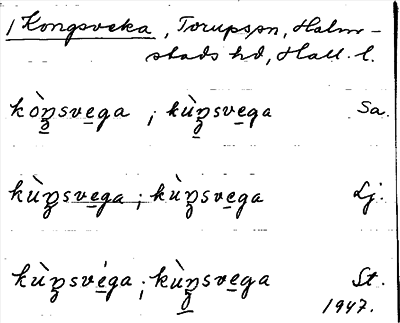 1 Kongsveka, Torups sn, Halm-
stads hd, Hall. l.
kòŋsvega ; kùŋsvega Sa.
kùŋsvega ; kùŋsvega Lj.
kùŋsvéga ; kùŋsvega St.
1947.